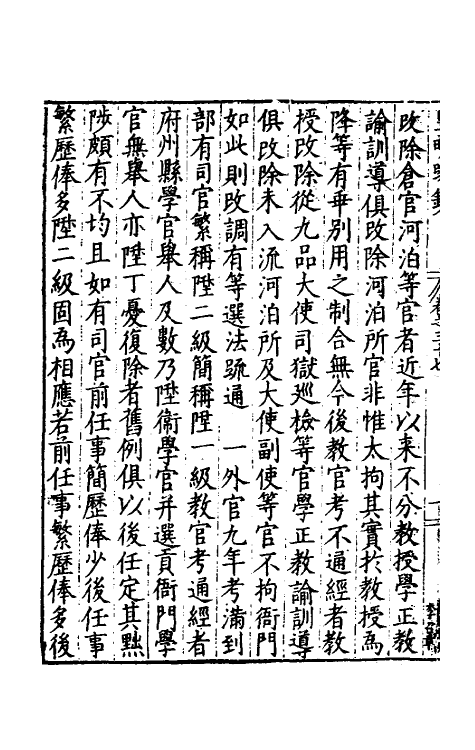 改除倉官河泊等官者近年以来不分教授學正教
諭訓導俱改除河泊所官非惟太拘其實於教授為
降等有乖別用之制合無今後教官考不通經者教
授改除從九品大使司獄巡檢等官學正教諭訓導
俱改除未入流河泊所及大使副使等官不拘衙門
如此則改調有等選法疏通　一外官九年考滿到
部有司官繁稱陞二級簡稱陞一級教官考通經者
府州縣學官舉人及數乃陞衞學官并選貢衙門學
官無舉人亦陞丁憂復除者舊例俱以後任定其黜
陟頗有不均且如有司官前任事簡歷俸少後任事
繁歷俸多陞二級固為相應若前任事繁歷俸多後